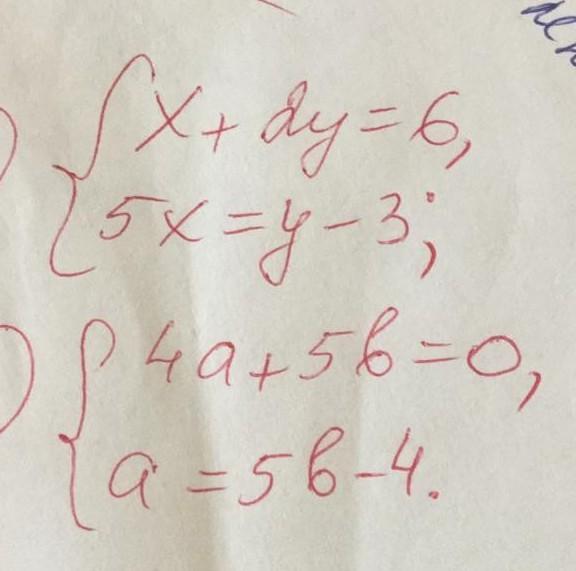 ) { x + 2y = 6,
5x = y - 3;
) { 4a + 5b = 0,
a = 5b - 4.